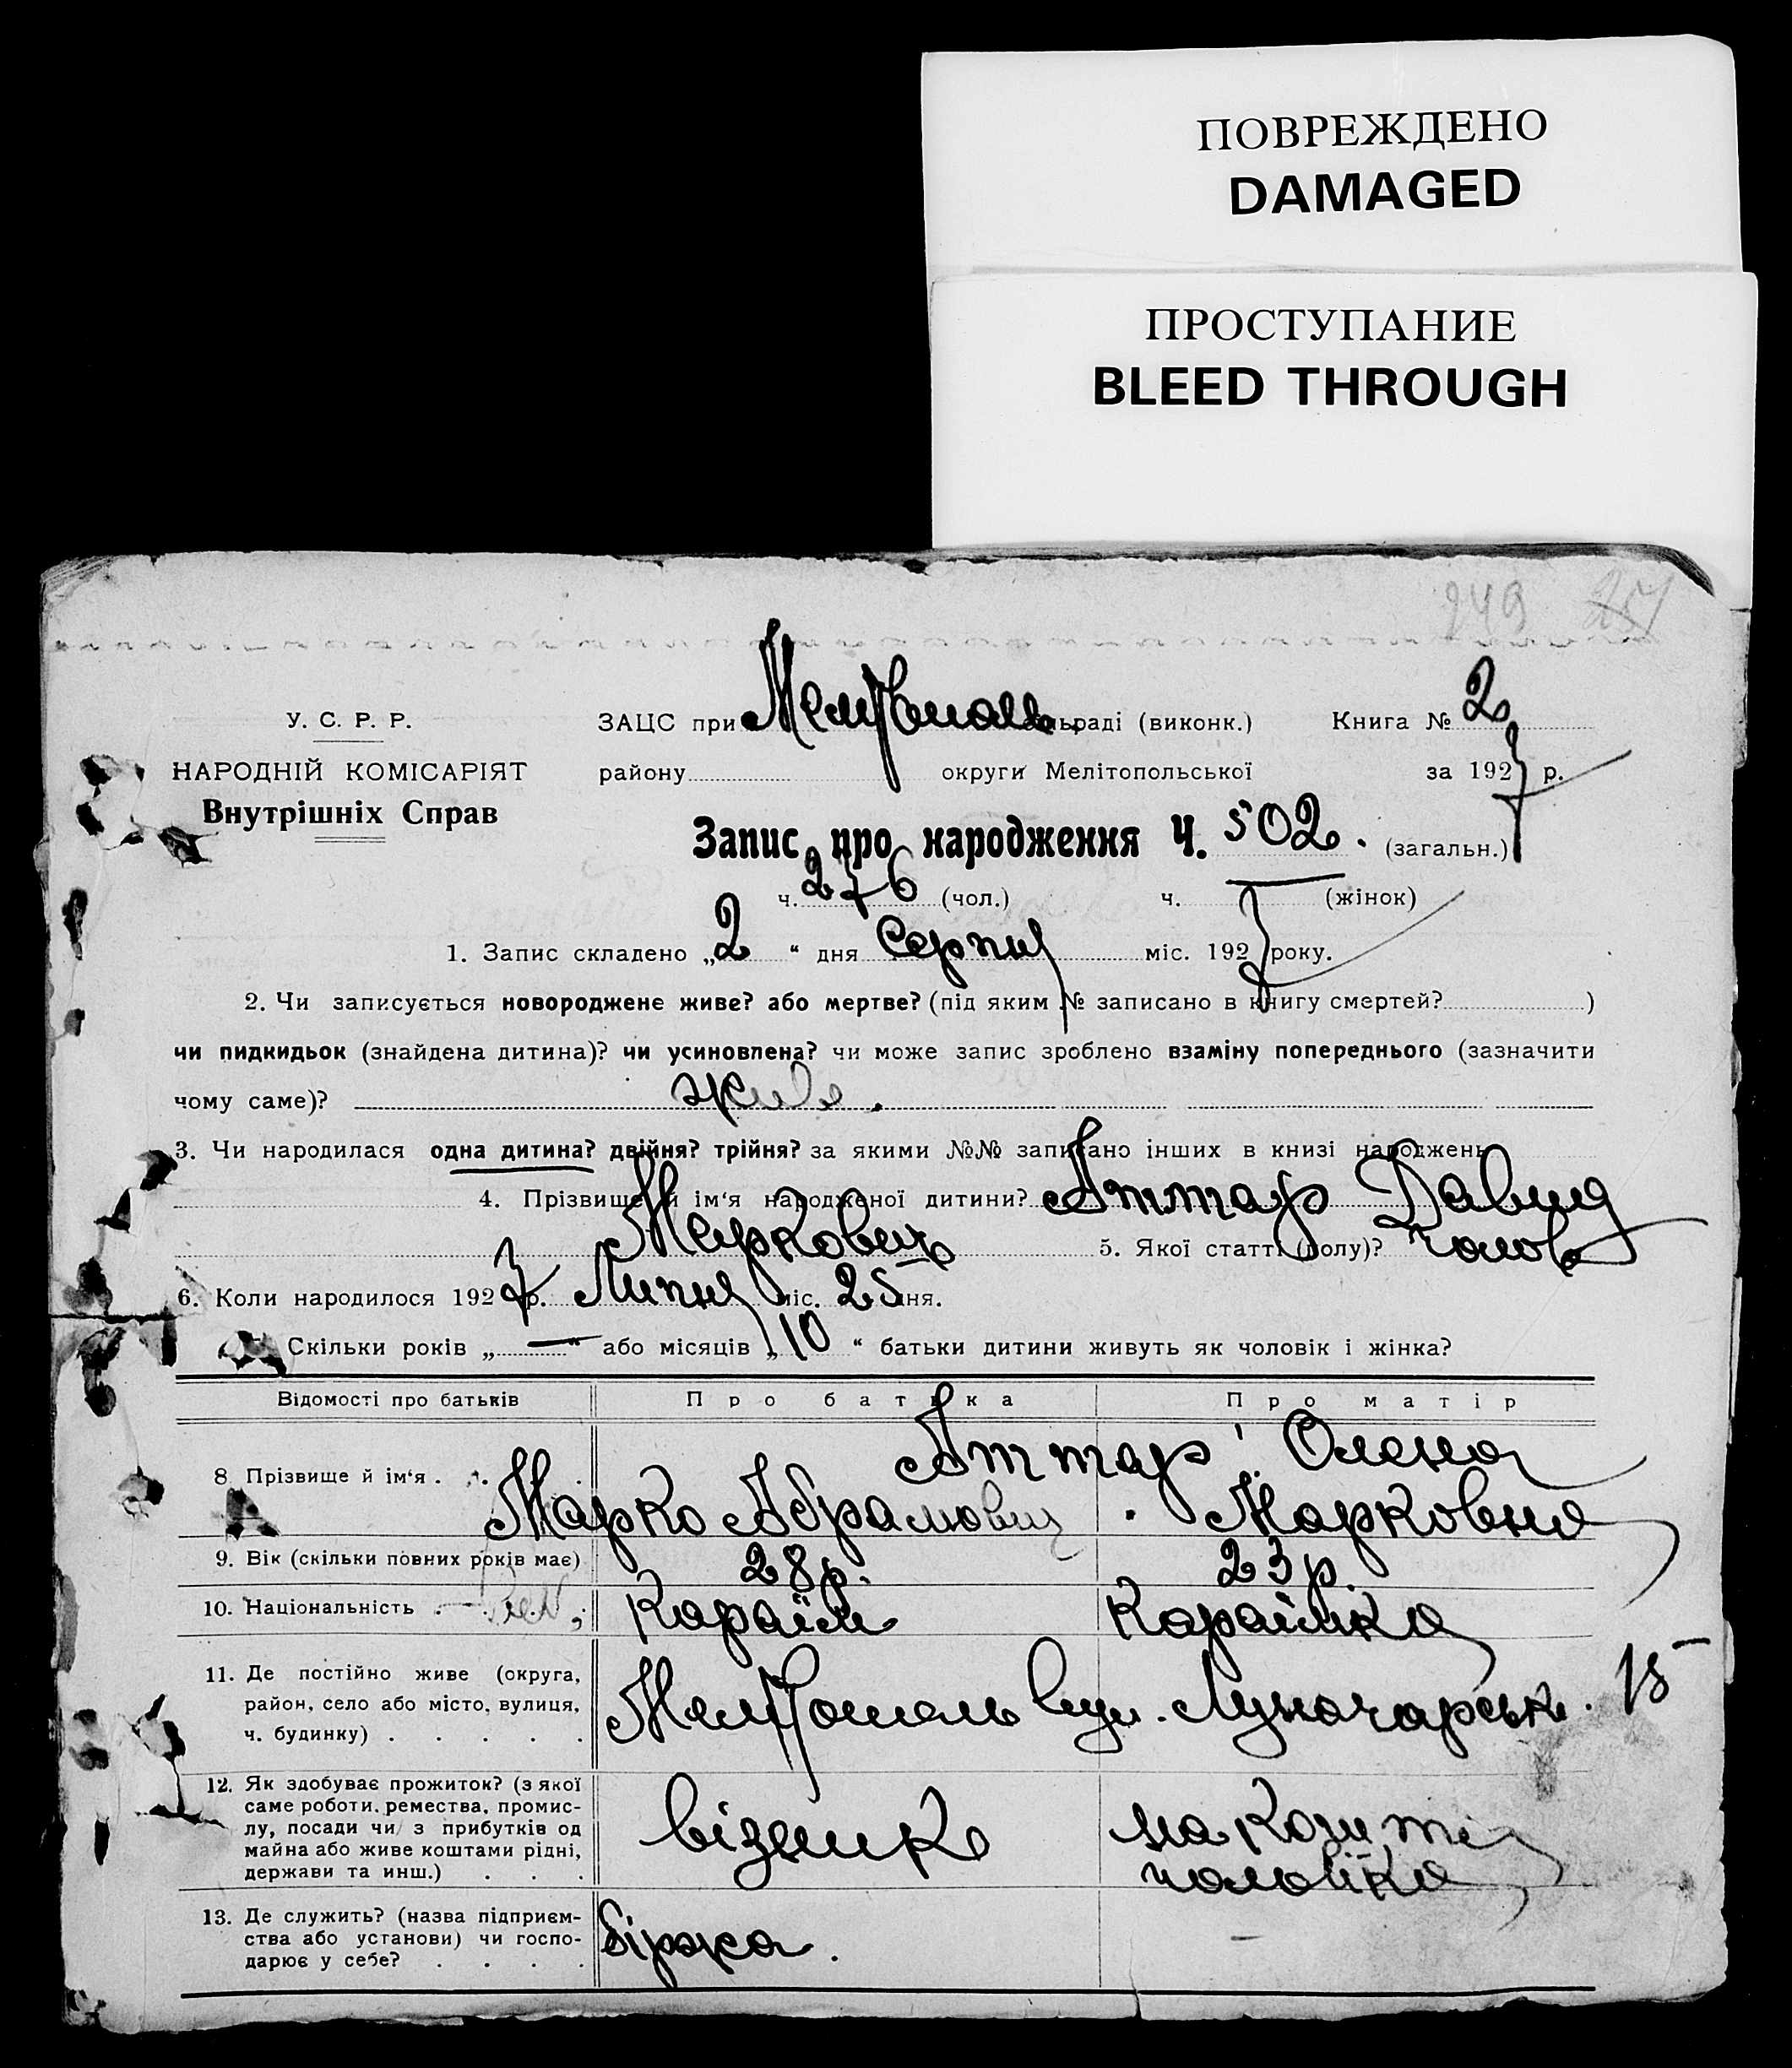 ПОВРЕЖДЕНО
DAMAGED
ПРОСТУПАНИЕ
BLEED THROUGH
249 251
У. С. Р. Р.
НАРОДНІЙ КОМІСАРІЯТ
Внутрішніх Справ
ЗАЦС при Мелітополь. міськраді (виконк.) Книга № 2
району округи Мелітопольської за 1927 р.
Запис про народження Ч. 502. (загальн.)
ч. 276 (чол.) ч. — (жінок)
1. Запис складено „2“ дня Серпня міс. 1927 року.
2. Чи записується новороджене живе? або мертве? (під яким № записано в книгу смертей? )
чи пидкидьок (знайдена дитина)? чи усиновлена? чи може запис зроблено взаміну попереднього (зазначити
чому саме)? живе.
3. Чи народилася одна дитина? двійня? трійня? за якими №№ записано інших в книзі народжень
4. Прізвище й ім‘я народженої дитини? Аттар Давид
Маркович 5. Якої статті (полу)? чолов
6. Коли народилося 1927 р. Липня міс. 25 дня.
Скільки років „—“ або місяців „10“ батьки дитини живуть як чоловік і жінка?
Відомості про батьків Про батька Про матір
8. Прізвище й ім‘я . . Аттар Олена
Марко Абрамович . Марковна
9. Вік (скільки повних років має) 28 р. 23 р.
10. Національність . Караїм Караїмка
11. Де постійно живе (округа,
район, село або місто, вулиця,
ч. будинку) . . . . .
Мелітополь вул. Луначарськ. 15
12. Як здобуває прожиток? (з якої
саме роботи, ремества, промис-
лу, посади чи з прибутків од
майна або живе коштами рідні,
держави та инш.) . . .
візник на кошти
чоловіка
13. Де служить? (назва підприєм-
ства або установи) чи госпо-
дарює у себе? . . . .
Біржа. —